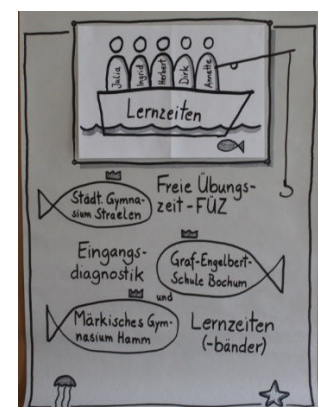 Julia
Ingrid
Herbert
Dirk
Annette
Lernzeiten
Städt. Gymna-
sium Straelen
Freie Übungs-
zeit - FÜZ
Eingangs-
diagnostik
Graf-Engelbert-
Schule Bochum
und
Märkisches Gym-
nasium Hamm
Lernzeiten
(-bänder)